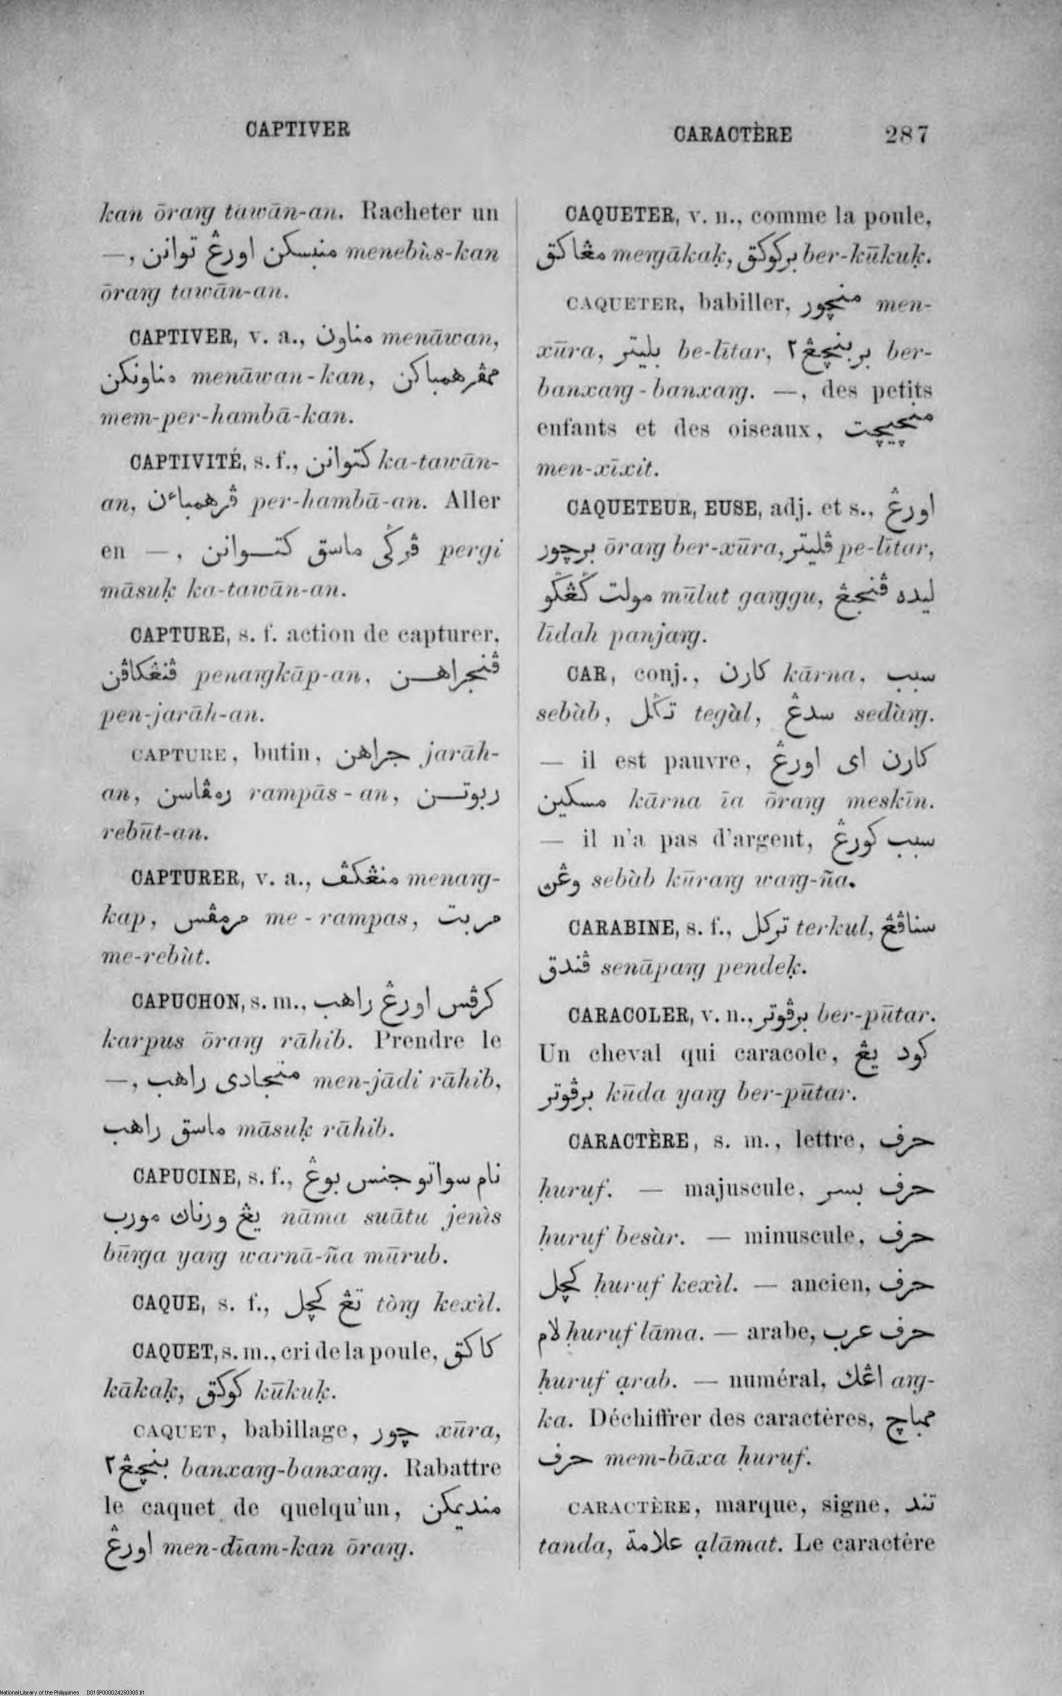 CAPTIVER
CARACTÈRE 287
kan ōraŋ tawān-an. Racheter un
—, منبسكن اورڠ توانن menebùs-kan
ōraŋ tawān-an.
CAPTIVER, v. a., مناون menāwan,
مناونكن menāwan-kan, ممڤرهمباكن
mem-per-hambā-kan.
CAPTIVITÉ, s. f., كتوانن ka-tawān-
an, ڤرهمباءن per-hambā-an. Aller
en —, ڤرݢي ماسق كتوانن pergi
māsuḳ ka-tawān-an.
CAPTURE, s. f. action de capturer,
ڤنڠكاڤن penaŋkāp-an, ڤنجراهن
pen-jarāh-an.
CAPTURE, butin, جراهن jarāh-
an, رمڤاسن rampās-an, ربوتن
rebūt-an.
CAPTURER, v. a., منڠكڤ menaŋ-
kap, مرمڤس me-rampas, مربت
me-rebùt.
CAPUCHON, s. m., كرڤس اورڠ راهب
karpus ōraŋ rāhib. Prendre le
—, منجادى راهب men-jādi rāhib,
ماسق راهب māsuḳ rāhib.
CAPUCINE, s. f., نام سواتو جنس بوڠ
يڠ ورناڽ مورب nāma suātu jenìs
būŋa yaŋ warnā-ña mūrub.
CAQUE, s. f., تڠ كچل tòŋ kexìl.
CAQUET, s. m., cri de la poule, كاكق
kākaḳ, كوكق kūkuḳ.
CAQUET, babillage, چور xūra,
بنچڠ٢ banxaŋ-banxaŋ. Rabattre
le caquet de quelqu'un, منديمكن
اورڠ men-dīam-kan ōraŋ.
CAQUETER, v. n., comme la poule,
مڠاكق meŋākaḳ, بركوكق ber-kūkuḳ.
CAQUETER, babiller, منچور men-
xūra, بليتر be-lītar, بربنچڠ٢ ber-
banxaŋ-banxaŋ. —, des petits
enfants et des oiseaux, منچيچت
men-xīxit.
CAQUETEUR, EUSE, adj. et s., اورڠ
برچور ōraŋ ber-xūra, ڤليتر pe-lītar,
مولت ݢڠݢو mūlut gaŋgu, ليده ڤنجڠ
līdah panjaŋ.
CAR, conj., كارن kārna, سبب
sebàb, تݢل tegàl, سدڠ sedàŋ.
— il est pauvre, كارن اى اورڠ
مسكين kārna īa ōraŋ meskīn.
— il n'a pas d'argent, سبب كورڠ
وڠن sebàb kūraŋ waŋ-ña.
CARABINE, s. f., تركل terkul, سناڤڠ
ڤندق senāpaŋ pendeḳ.
CARACOLER, v. n., برڤوتر ber-pūtar.
Un cheval qui caracole, كود يڠ
برڤوتر kūda yaŋ ber-pūtar.
CARACTÈRE, s. m., lettre, حرف
ḥuruf. — majuscule, حرف بسر
ḥuruf besàr. — minuscule, حرف
كچل ḥuruf kexìl. — ancien, حرف
لام ḥuruf lāma. — arabe, حرف عرب
ḥuruf ạrab. — numéral, اڠك aŋ-
ka. Déchiffrer des caractères, ممباچ
حرف mem-bāxa ḥuruf.
CARACTÈRE, marque, signe, تند
tanda, علامة ạlāmat. Le caractère
National Library of the Philippines